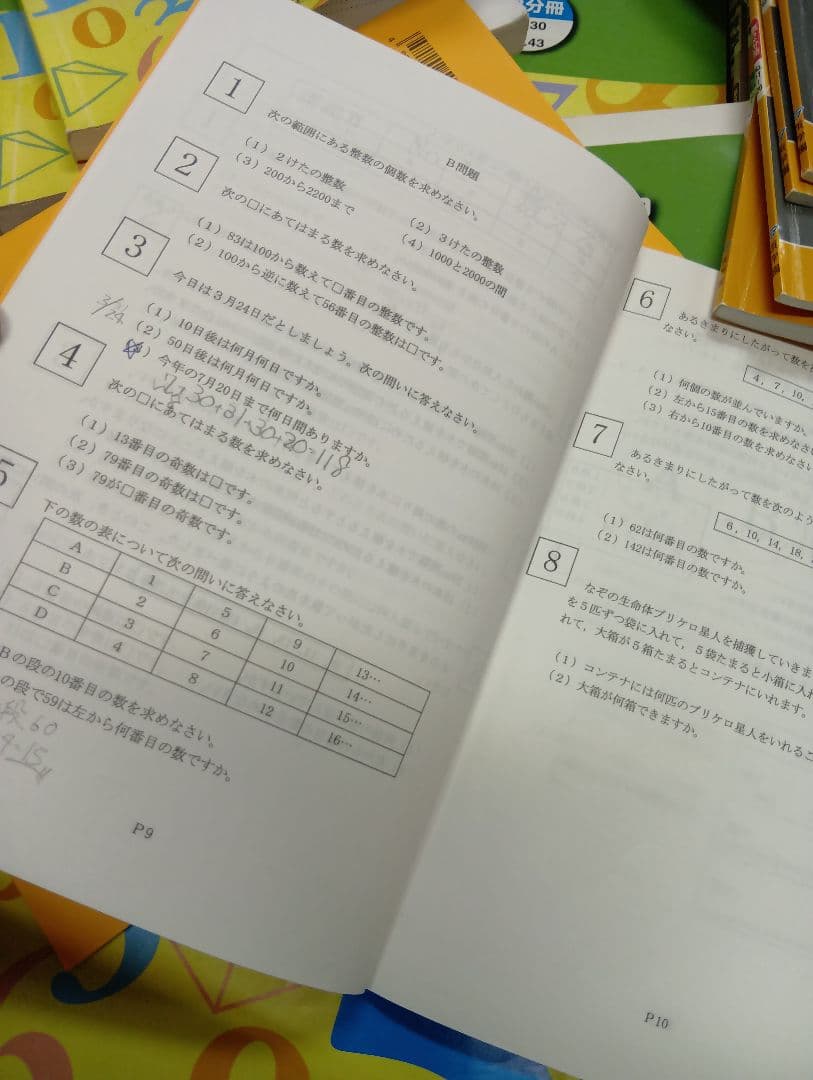 分冊
30
.43
B問題
1
次の範囲にある整数の個数を求めなさい。
(1) 2けたの整数
(2) 3けたの整数
(3) 200から2200まで
(4) 1000と2000の間
2
次の□にあてはまる数を求めなさい。
(1) 83は100から数えて□番目の整数です。
(2) 100から逆に数えて56番目の整数は□です。
3
今日は3月24日だとしましょう。次の問いに答えなさい。
3/24
(1) 10日後は何月何日ですか。
(2) 50日後は何月何日ですか。
今年の7月20日まで何日間ありますか。
30+31+30+20=118
4
次の□にあてはまる数を求めなさい。
(1) 13番目の奇数は□です。
(2) 79番目の奇数は□です。
(3) 79が□番目の奇数です。
5
下の数の表について次の問いに答えなさい。
A 1 5 9 13…
B 2 6 10 14…
C 3 7 11 15…
D 4 8 12 16…
Bの段の10番目の数を求めなさい。
の段で59は左から何番目の数ですか。
段 60
P9
6
あるきまりにしたがって数を
なさい。
4, 7, 10,
(1) 何個の数が並んでいますか。
(2) 左から15番目の数を求めなさ
(3) 右から10番目の数を求めなさい
7
あるきまりにしたがって数を次のよう
なさい。
6, 10, 14, 18,
(1) 62は何番目の数ですか。
(2) 142は何番目の数ですか。
8
なぞの生命体プリケロ星人を捕獲していきま
を5匹ずつ袋に入れて，5袋たまると小箱に入れ
れて，大箱が5箱たまるとコンテナにいれます。
(1) コンテナには何匹のプリケロ星人をいれるこ
(2) 大箱が何箱できますか。
P10